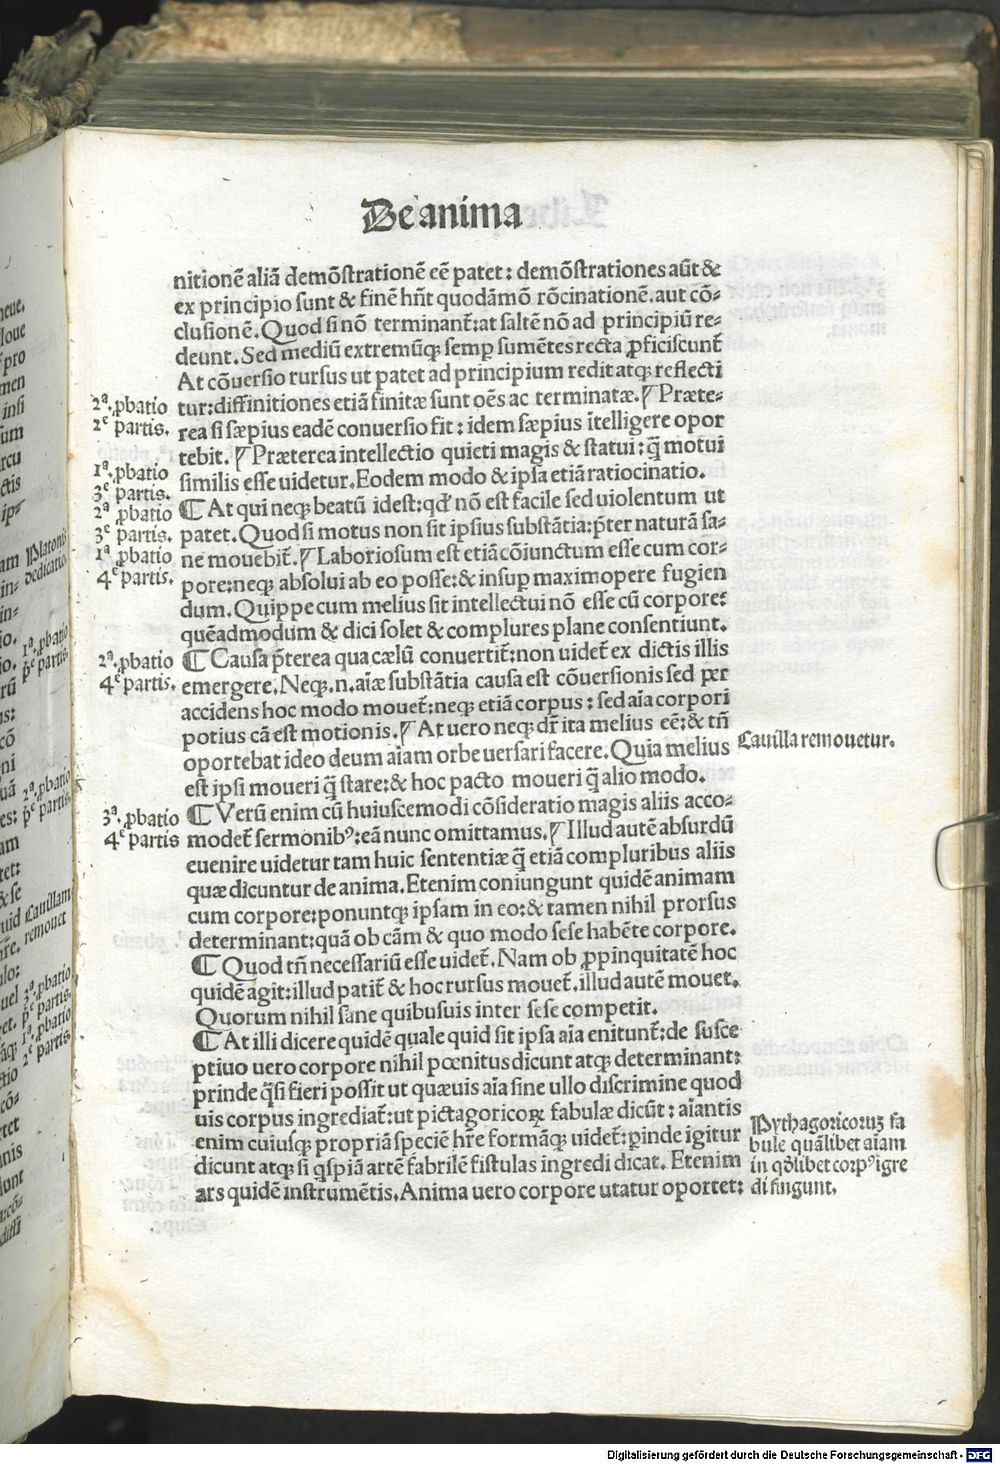 De anima
nitionē aliā demōſtrationē eē patet: demōſtrationes aūt &
ex principio ſunt & finē hn̄t quodāmō rōcinationē.aut cō-
cluſionē.Quod ſi nō terminant̄:at ſaltē nō ad principiū re-
deunt.Sed mediū extremūqꝫ ſemꝑ ſumētes recta ꝓficiſcunt̄
At cōuerſio rurſus ut patet ad principium redit atqꝫ reflecti
2ᵃ.ꝓbatio
2ᵉ partis.
tur:diffinitiones etiā finitæ ſunt oēs ac terminatæ.¶ Præte-
rea ſi ſæpius eadē conuerſio fit: idem ſæpius ītelligere opor
tebit.¶ Præterea intellectio quieti magis & ſtatui: q̄ motui
1ᵃ.ꝓbatio
3ᵉ partis.
ſimilis eſſe uidetur.Eodem modo & ipſa etiā ratiocinatio.
2ᵃ ꝓbatio
3ᵉ partis.
¶ At qui neqꝫ beatū ideſt:qd̕ nō eſt facile ſed uiolentum ut
patet.Quod ſi motus non ſit ipſius ſubſtātia:p̄ter naturā ſa-
1ᵃ ꝓbatio
4ᵉ partis.
ne mouebit̄.¶ Laborioſum eſt etiā cōiunctum eſſe cum cor-
pore:neqꝫ abſolui ab eo poſſe:& inſuꝑ maximopere fugien
dum.Quippe cum melius ſit intellectui nō eſſe cū corpore:
quēadmodum & dici ſolet & complures plane conſentiunt.
2ᵃ.ꝓbatio
4ᵉ partis.
¶ Cauſa p̄terea qua cælū conuertit̄:non uidet̄ ex dictis illis
emergere.Neqꝫ.n.aīæ ſubſtātia cauſa eſt cōuerſionis ſed per
accidens hoc modo mouet̄:neqꝫ etiā corpus: ſed aīa corpori
potius cā eſt motionis.¶ At uero neqꝫ dr̄ ita melius eē:& tn̄
Cauilla remouetur.
oportebat ideo deum aīam orbe uerſari facere.Quia melius
eſt ipſi moueri q̄ ſtare:& hoc pacto moueri q̄ alio modo.
3ᵃ.ꝓbatio
4ᵉ partis
¶ Verū enim cū huiuſcemodi cōſideratio magis aliis acco-
modet̄ ſermonibꝰ:eā nunc omittamus.¶ Illud autē abſurdū
euenire uidetur tam huic ſententiæ q̄ etiā compluribus aliis
quæ dicuntur de anima.Etenim coniungunt quidē animam
cum corpore:ponuntqꝫ ipſam in eo:& tamen nihil prorſus
determinant:quā ob cām & quo modo ſeſe habēte corpore.
¶ Quod tn̄ neceſſariū eſſe uidet̄.Nam ob ꝓpinquitatē hoc
quidē agit:illud patit̄ & hoc rurſus mouet̄.illud autē mouet.
Quorum nihil ſane quibuſuis inter ſeſe competit.
¶ At illi dicere quidē quale quid ſit ipſa aīa enitunt̄:de ſuſce
ptiuo uero corpore nihil pœnitus dicunt atqꝫ determinant:
prinde q̄ſi fieri poſſit ut quæuis aīa ſine ullo diſcrimine quod
uis corpus ingrediat̄:ut pictagoricoꝝ fabulæ dicūt: aīantis
Pythagoricoruꝫ fa
bule quālibet aīam
in qd̕libet corpꝰ īgre
di fingunt.
enim cuiuſqꝫ propriā ſpeciē hr̄e formāqꝫ uidet̄:ꝑinde igitur
dicunt atqꝫ ſi qſpiā artē fabrilē fiſtulas ingredi dicat. Etenim
ars quidē inſtrumētis.Anima uero corpore utatur oportet:
Platonis
dedicatio
1ᵃ.ꝓbatio
pᵉ partis.
2ᵃ.ꝓbatio
pᵉ partis.
Cauillam
remouet
3ᵃ.ꝓbatio
pᵉ partis.
1ᵃ.ꝓbatio
2ᵉ partis.
Digitalisierung gefördert durch die Deutsche Forschungsgemeinschaft - DFG